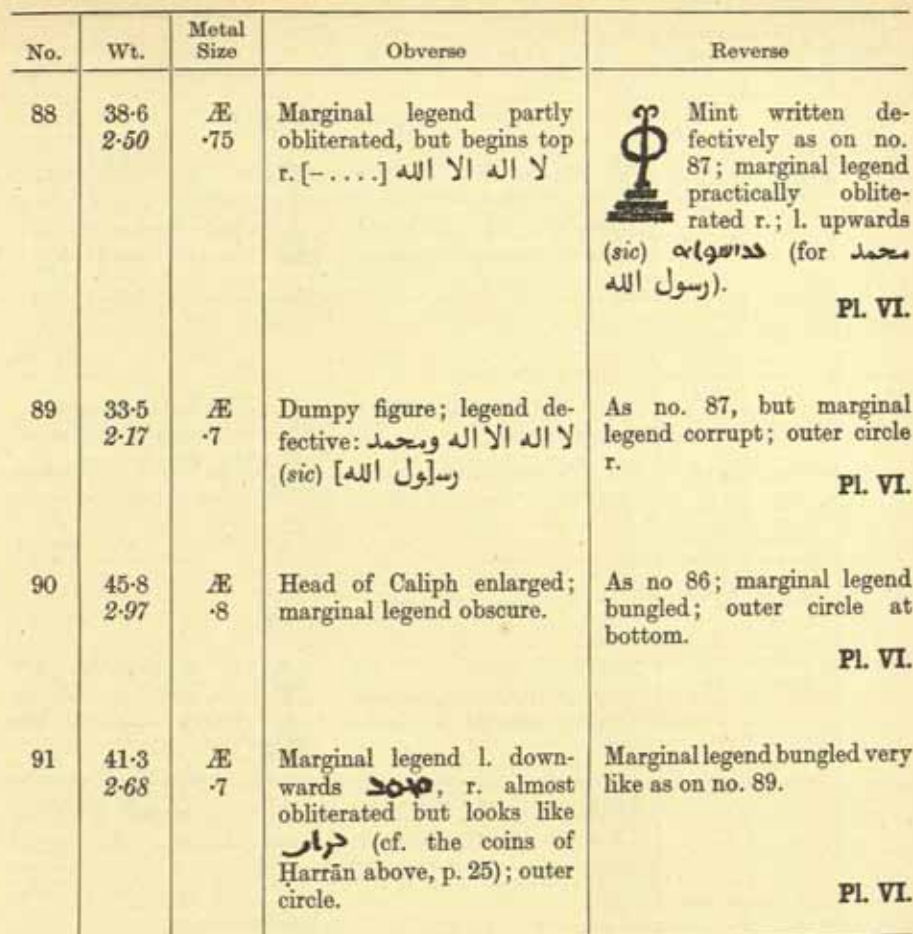 No. Wt. Metal Size Obverse Reverse
88 38·6 Æ Marginal legend partly
2·50 ·75 obliterated, but begins top
r. [–....] لا اله الا الله
Mint written de-
fectively as on no.
87; marginal legend
practically oblite-
rated r.; l. upwards
(sic) (for محمد
رسول الله).
Pl. VI.
89 33·5 Æ Dumpy figure; legend de-
2·17 ·7 fective: لا اله الا اله ومحمد
(sic) رسـ[ول الله]
As no. 87, but marginal
legend corrupt; outer circle
r.
Pl. VI.
90 45·8 Æ Head of Caliph enlarged;
2·97 ·8 marginal legend obscure.
As no 86; marginal legend
bungled; outer circle at
bottom.
Pl. VI.
91 41·3 Æ Marginal legend l. down-
2·68 ·7 wards , r. almost
obliterated but looks like
(cf. the coins of
Ḥarrān above, p. 25); outer
circle.
Marginal legend bungled very
like as on no. 89.
Pl. VI.